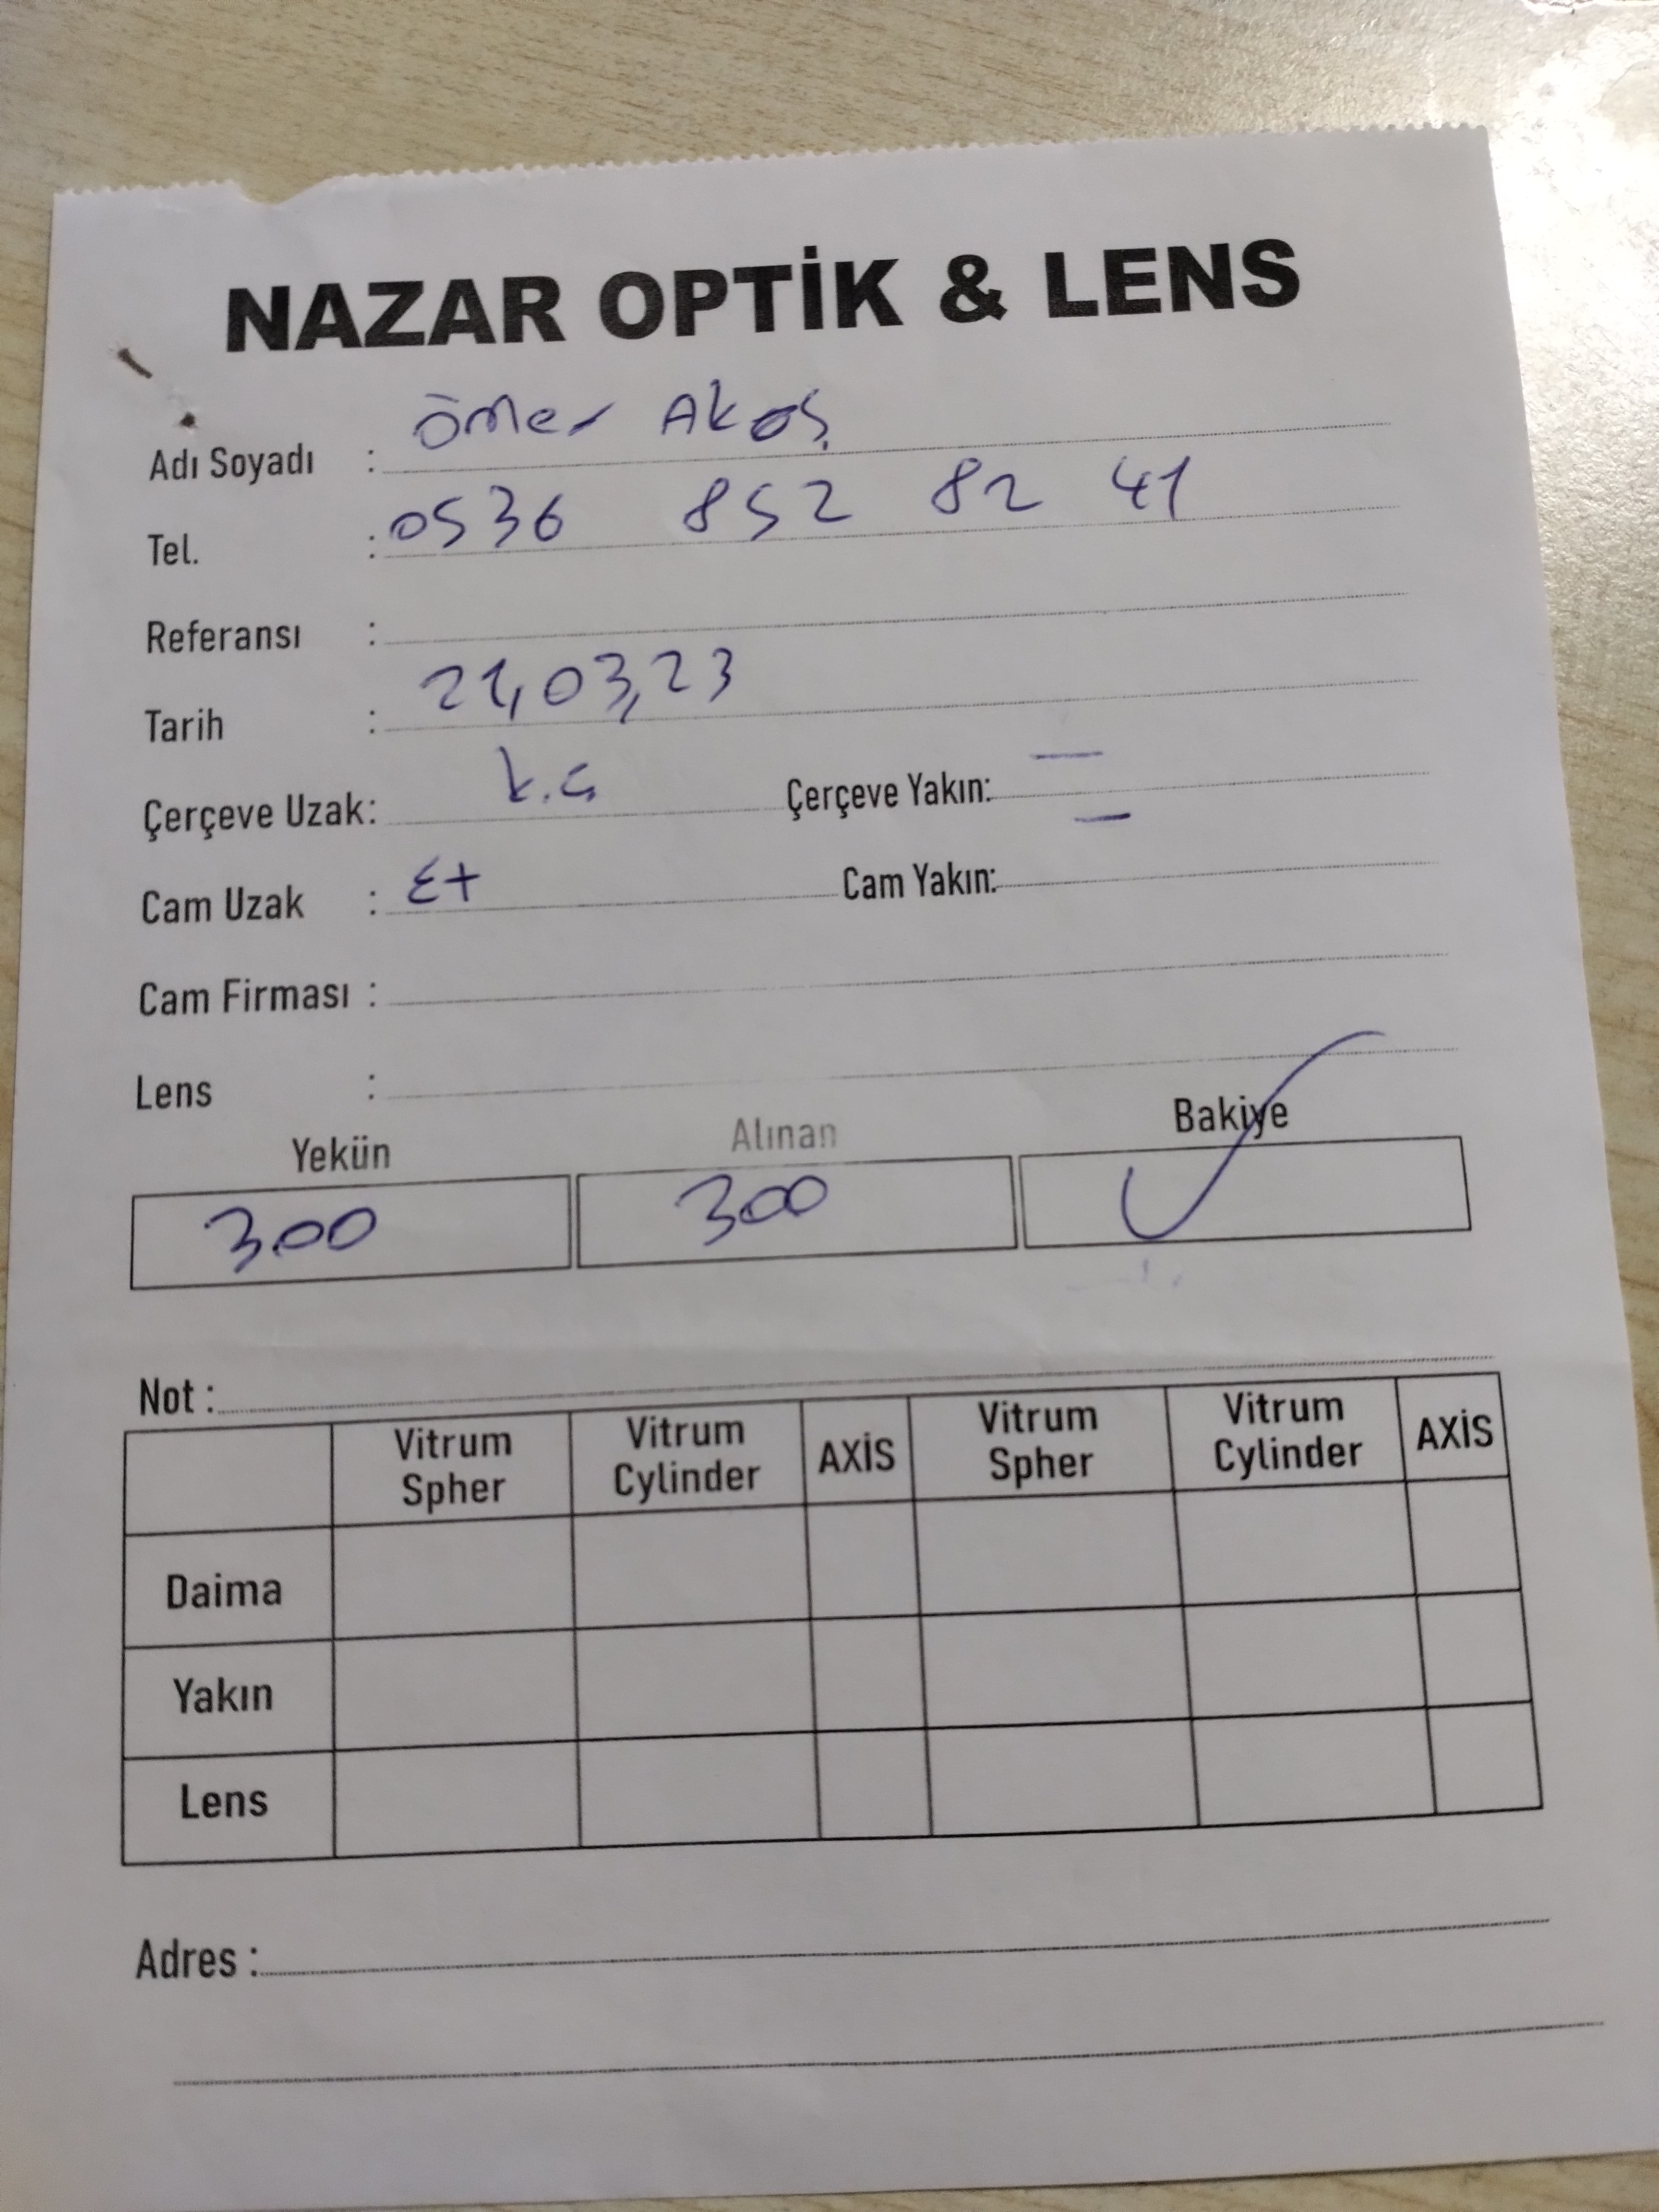 NAZAR OPTİK & LENS
Adı Soyadı : Ömer Akoş
Tel. : 0536 852 82 41
Referansı :
Tarih : 21,03,23
Çerçeve Uzak: k.ç Çerçeve Yakın: —
Cam Uzak : Et Cam Yakın: —
Cam Firması :
Lens :
Yekün Alınan Bakiye
300 300 ✓
Not :
Vitrum Spher Vitrum Cylinder AXİS Vitrum Spher Vitrum Cylinder AXİS
Daima
Yakın
Lens
Adres :